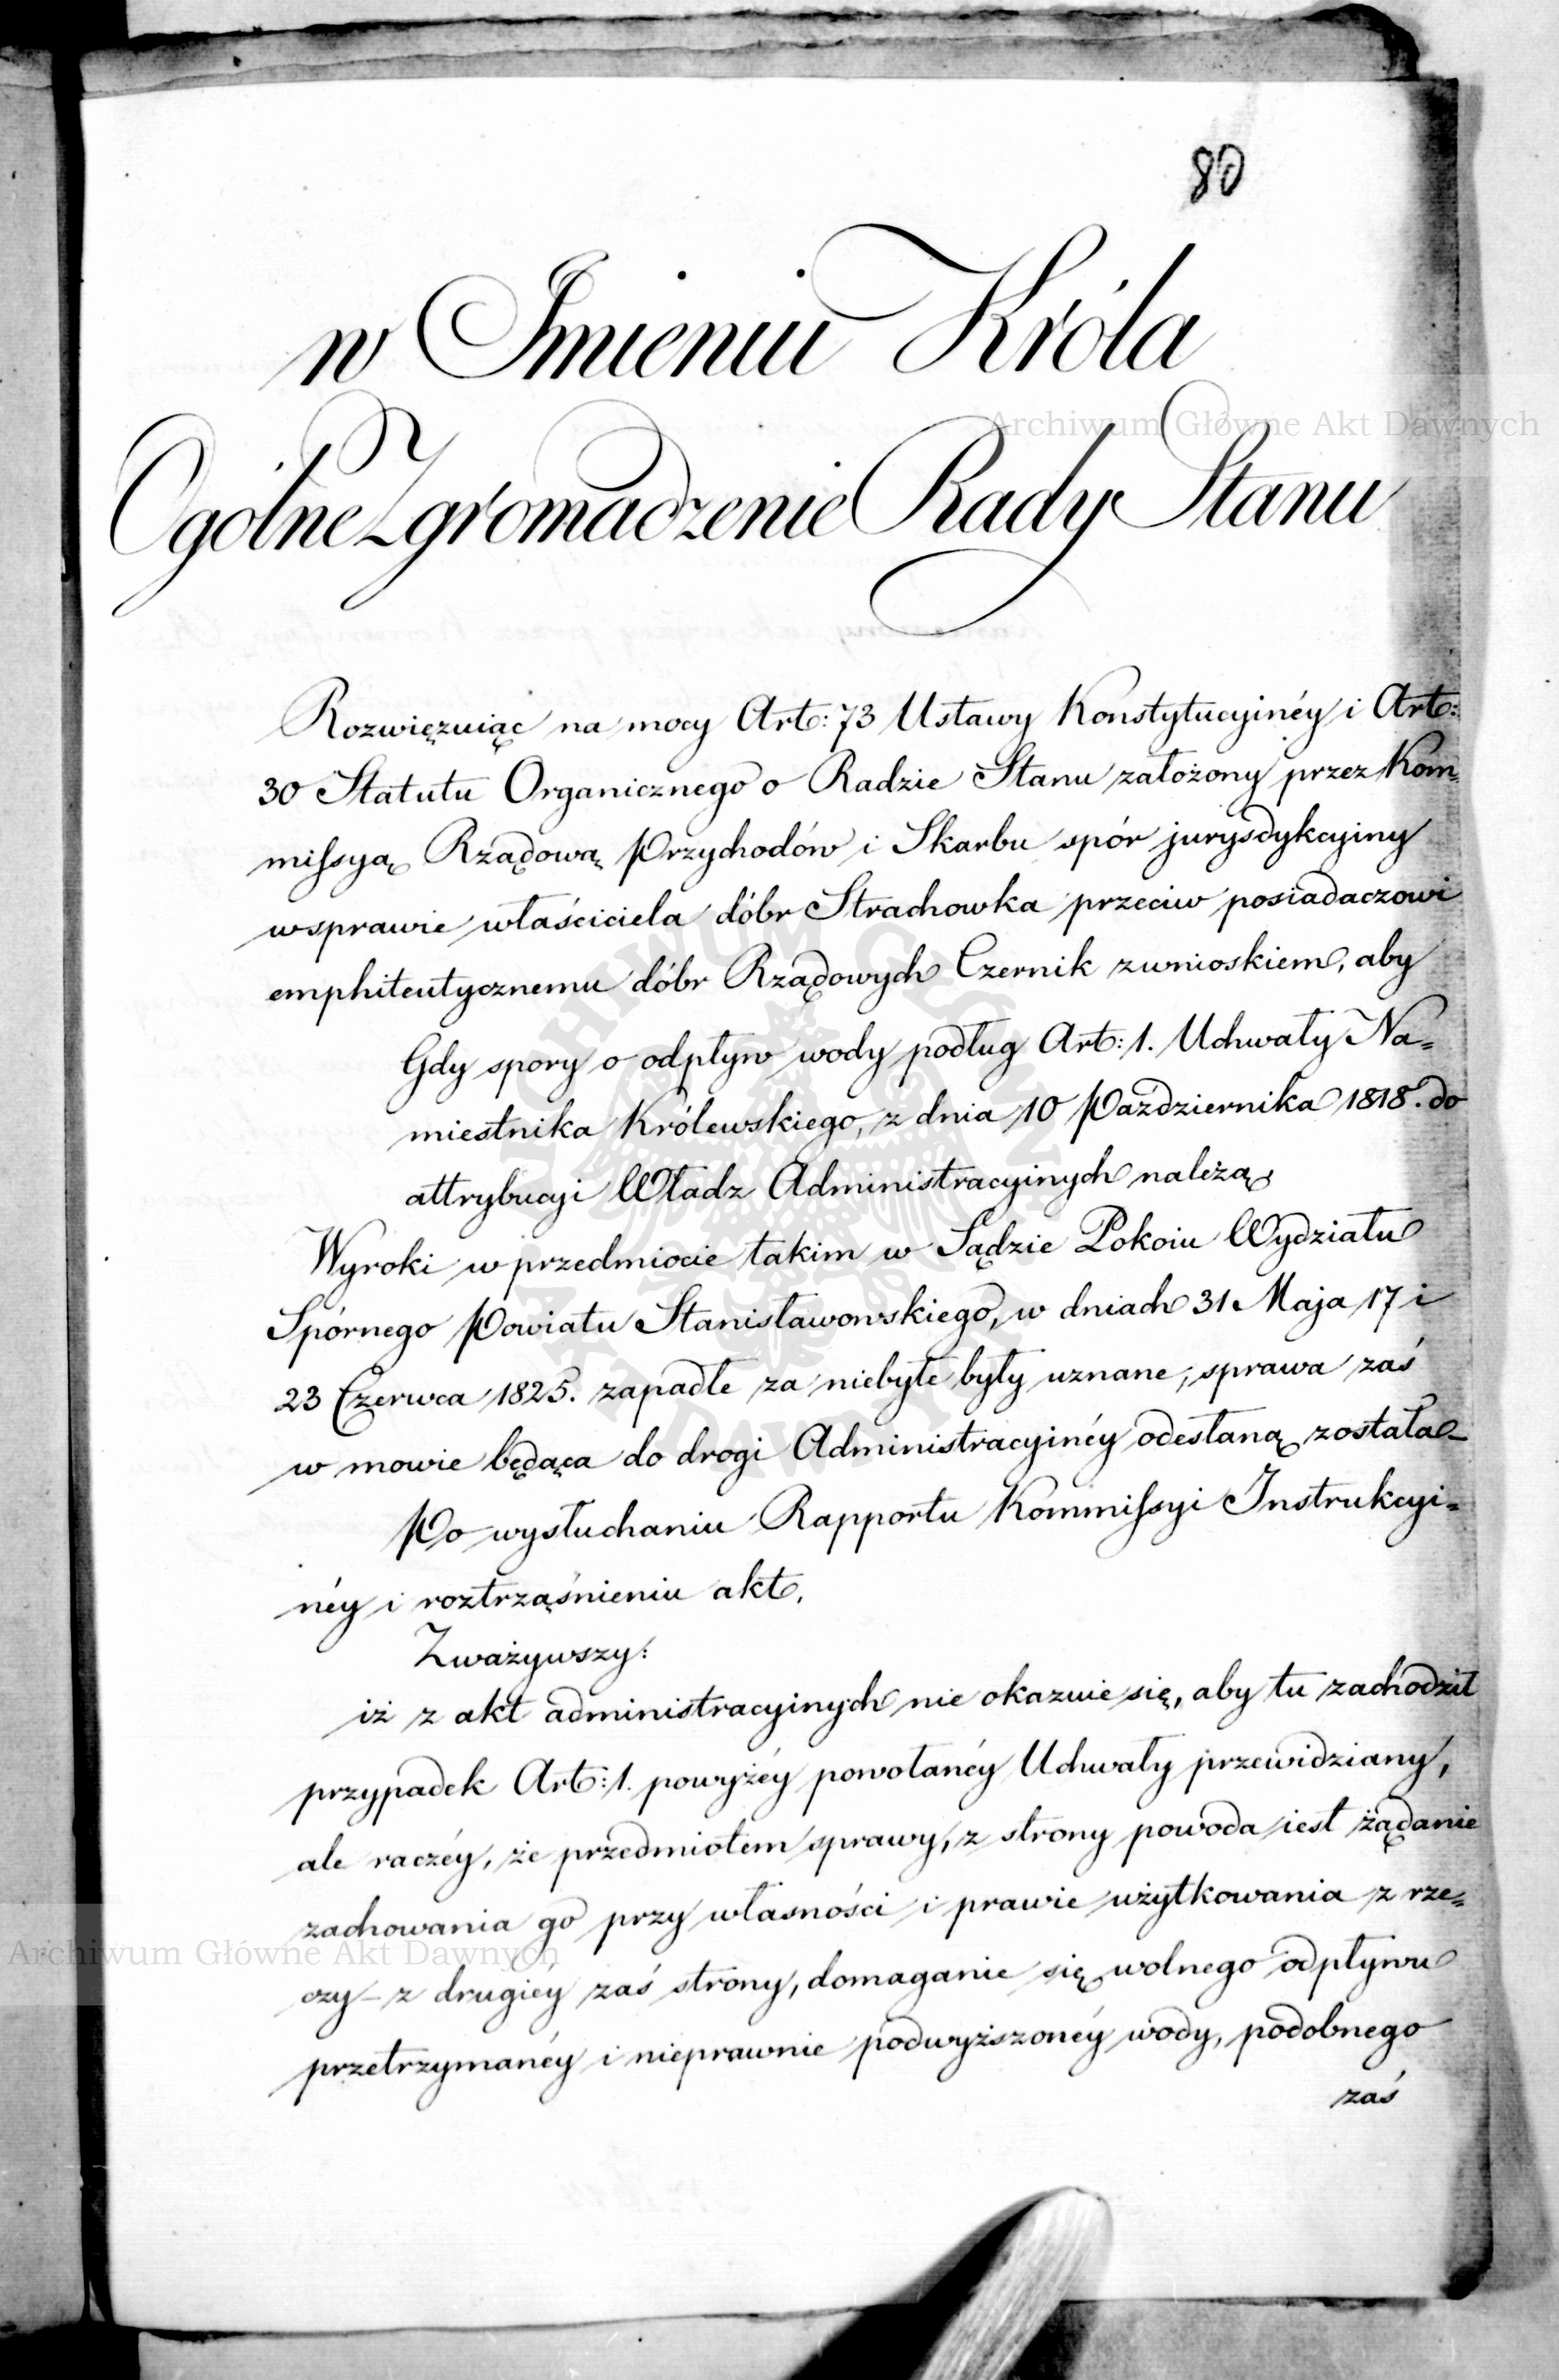 80
w Imieniu Króla
Ogólne Zgromadzenie Rady Stanu
Rozwięzuiąc na mocy Art: 73 Ustawy Konstytucyinéy i Art:
30 Statutu Organicznego o Radzie Stanu założony przez Kom=
missyą Rządową Przychodów i Skarbu spór jurysdykcyiny
w sprawie właściciela dóbr Strachowka przeciw posiadaczowi
emphiteutycznemu dóbr Rządowych Czernik z wnioskiem, aby
Gdy spory o odpływ wody podług Art: 1. Uchwały Na=
miestnika Królewskiego, z dnia 10 Października 1818. do
attrybucyi Władz Administracyinych należą
Wyroki w przedmiocie takim w Sądzie Pokoiu Wydziału
Spórnego Powiatu Stanisławowskiego, w dniach 31 Maja 17 i
23 Czerwca 1825. zapadłe za niebyłe były uznane, sprawa zaś
w mowie będąca do drogi Administracyinéy odesłaną została_
Po wysłuchaniu Rapportu Kommissyi Instrukcyi=
néy i roztrząśnieniu akt,
Zważywszy:
iż z akt administracyinych nie okazuie się, aby tu zachodził
przypadek Art: 1. powyżéy powołanéy Uchwały przewidziany,
ale raczéy, że przedmiotem sprawy, z strony powoda iest żądanie
zachowania go przy własności i prawie użytkowania z rze=
czy – z drugiéy zaś strony, domaganie się wolnego odpływu
przetrzymanéy i nieprawnie podwyższonéy wody, podobnego
zaś
Archiwum Główne Akt Dawnych
Archiwum Główne Akt Dawnych
ARCHIWUM GŁÓWNE AKT DAWNYCH